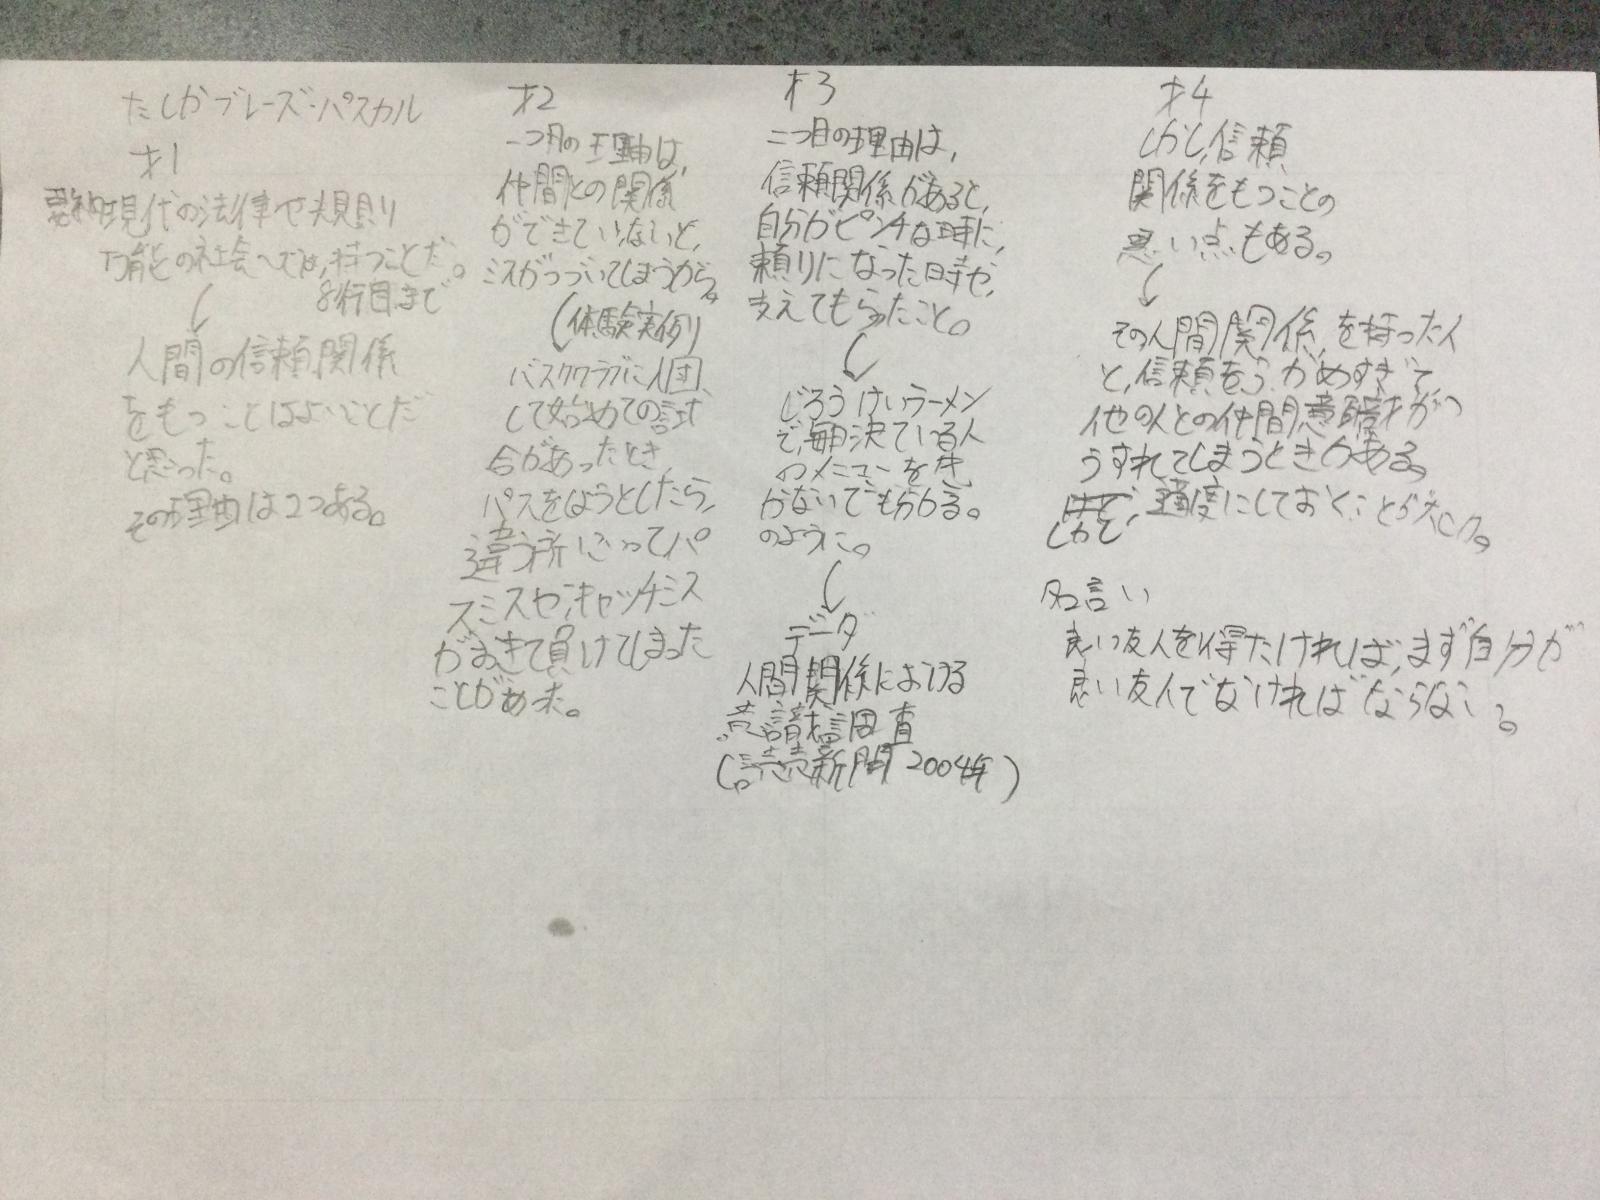 たしかブレーズ・パスカル
才1
要約現代の法律や規則
万能の社会では,持つことだ。
8行目まで
人間の信頼関係
をもつことはよいことだ
と思った。
その理由は2つある。
才2
一つ目の理由は,
仲間との関係
ができていないと,
ミスがつづいてしまうから。
(体験実例)
バスケクラブに入団
して始めての試
合があったとき,
パスをしようとしたら,
違う所にいってパ
スミスや,キャッチミス
がおきて負けてしまった
ことがあった。
才3
二つ目の理由は,
信頼関係があると,
自分がピンチな時に,
頼りになった時や,
支えてもらったこと。
じろうけいラーメン
で,毎日決ている人
のメニューを聞
かないでも分かる。
のように。
データ
人間関係における
調査
(読売新聞 2004年)
才4
しかし,信頼
関係をもつことの
悪い点もある。
その人間関係,を持った人
と,信頼をふかめすぎて
他の人との仲間意識が
うすれてしまうときもある。
しかて,適度にしておくことが大切。
名言い
良い友人を得たければ,まず自分が
良い友人でなければならない。